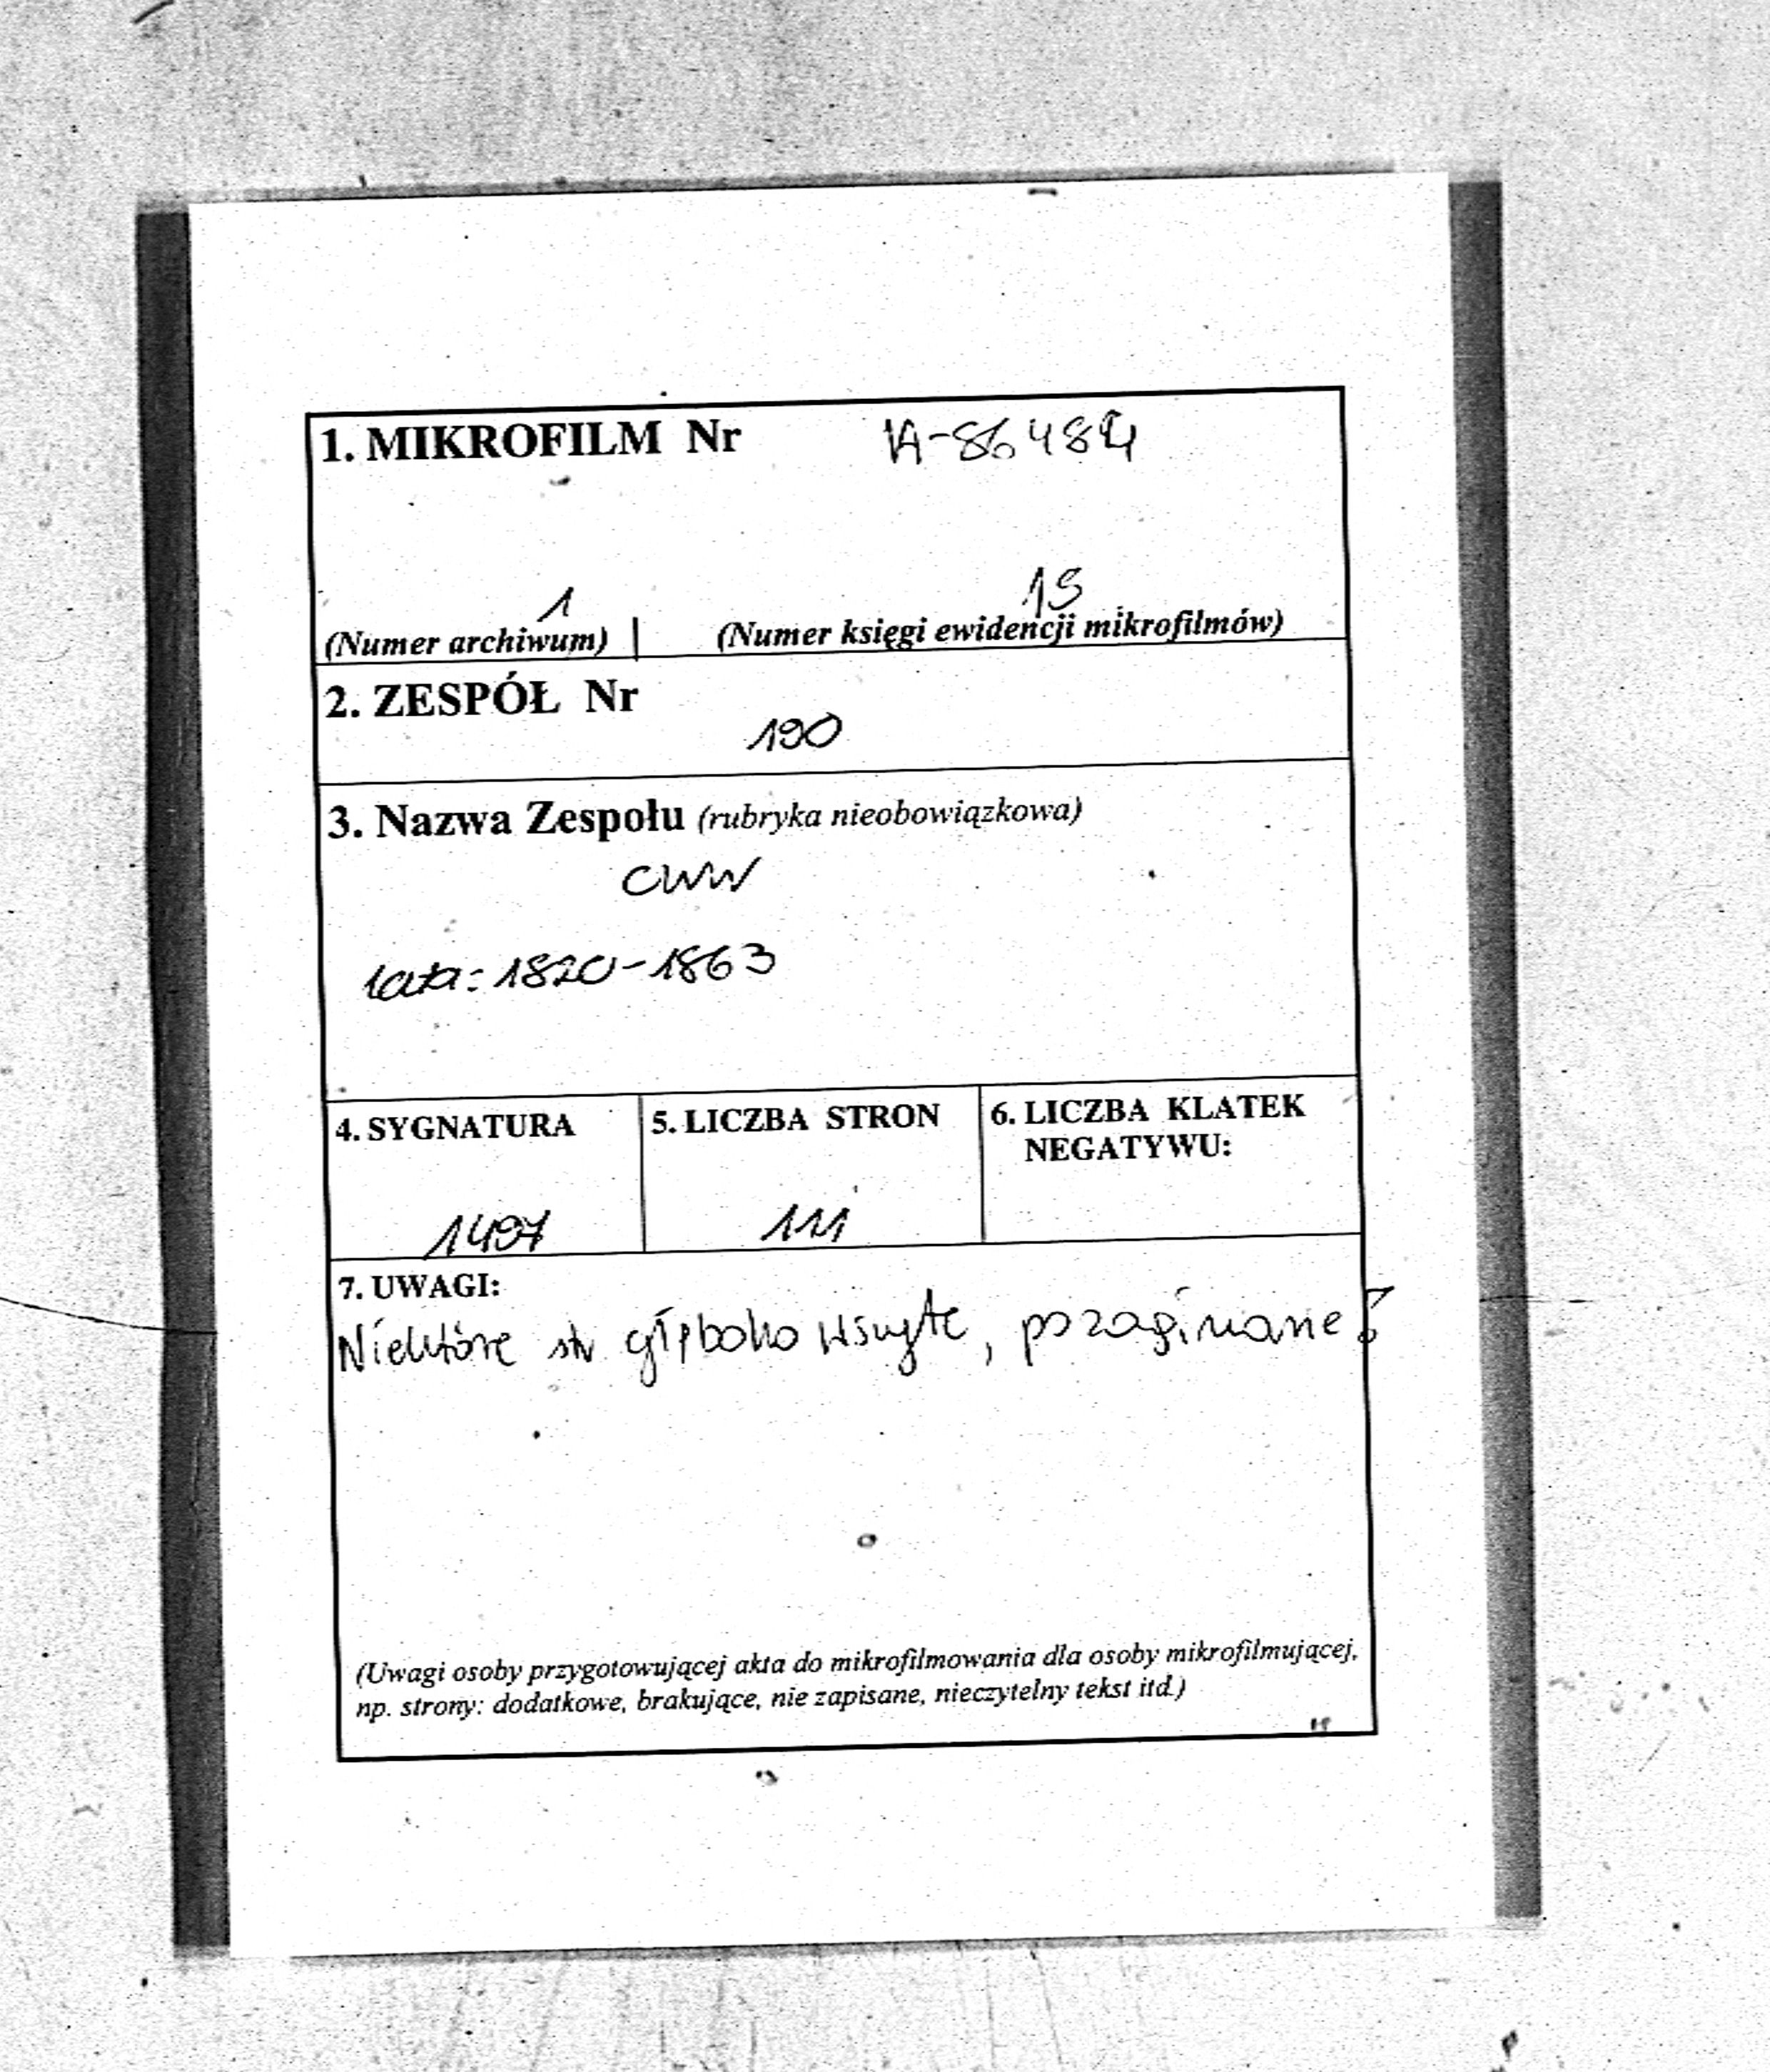 1. MIKROFILM Nr
1 15
(Numer archiwum) | (Numer księgi ewidencji mikrofilmów)
2. ZESPÓŁ Nr
190
3. Nazwa Zespołu (rubryka nieobowiązkowa)
CWW
lata: 1820-1863
4. SYGNATURA 5. LICZBA STRON 6. LICZBA KLATEK
NEGATYWU:
1497 111
7. UWAGI:
Niektóre str głęboko wszyte, pozaginane
(Uwagi osoby przygotowującej akta do mikrofilmowania dla osoby mikrofilmującej,
np. strony: dodatkowe, brakujące, nie zapisane, nieczytelny tekst itd.)